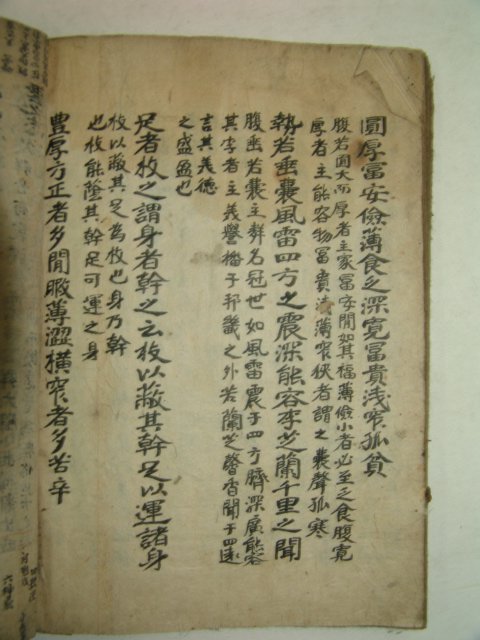 圓厚冨安儉薄食乏深寛冨貴浅窄孤貧
腹若圓大而厚者主家冨安閒如其福薄儉小者必至乏食腹寛
厚者主能容物冨貴浅薄窄俠者謂之囊聲孤寒
勢若垂囊風雷四方之震深能容李芝蘭千里之聞
腹垂若囊主群名冠世如風雷震于四方臍深廣能容
其李者主義譽播于邦畿之外若蘭芝馨香聞于四遠
言其義德
之盛盈也
足者枚之謂身者幹之云枚以蔽其幹足以運諸身
枚以蔽其足為枚也身乃幹
也枚能蔭其幹足可運之身
豊厚方正者多閒暇薄澀橫窄者多苦辛